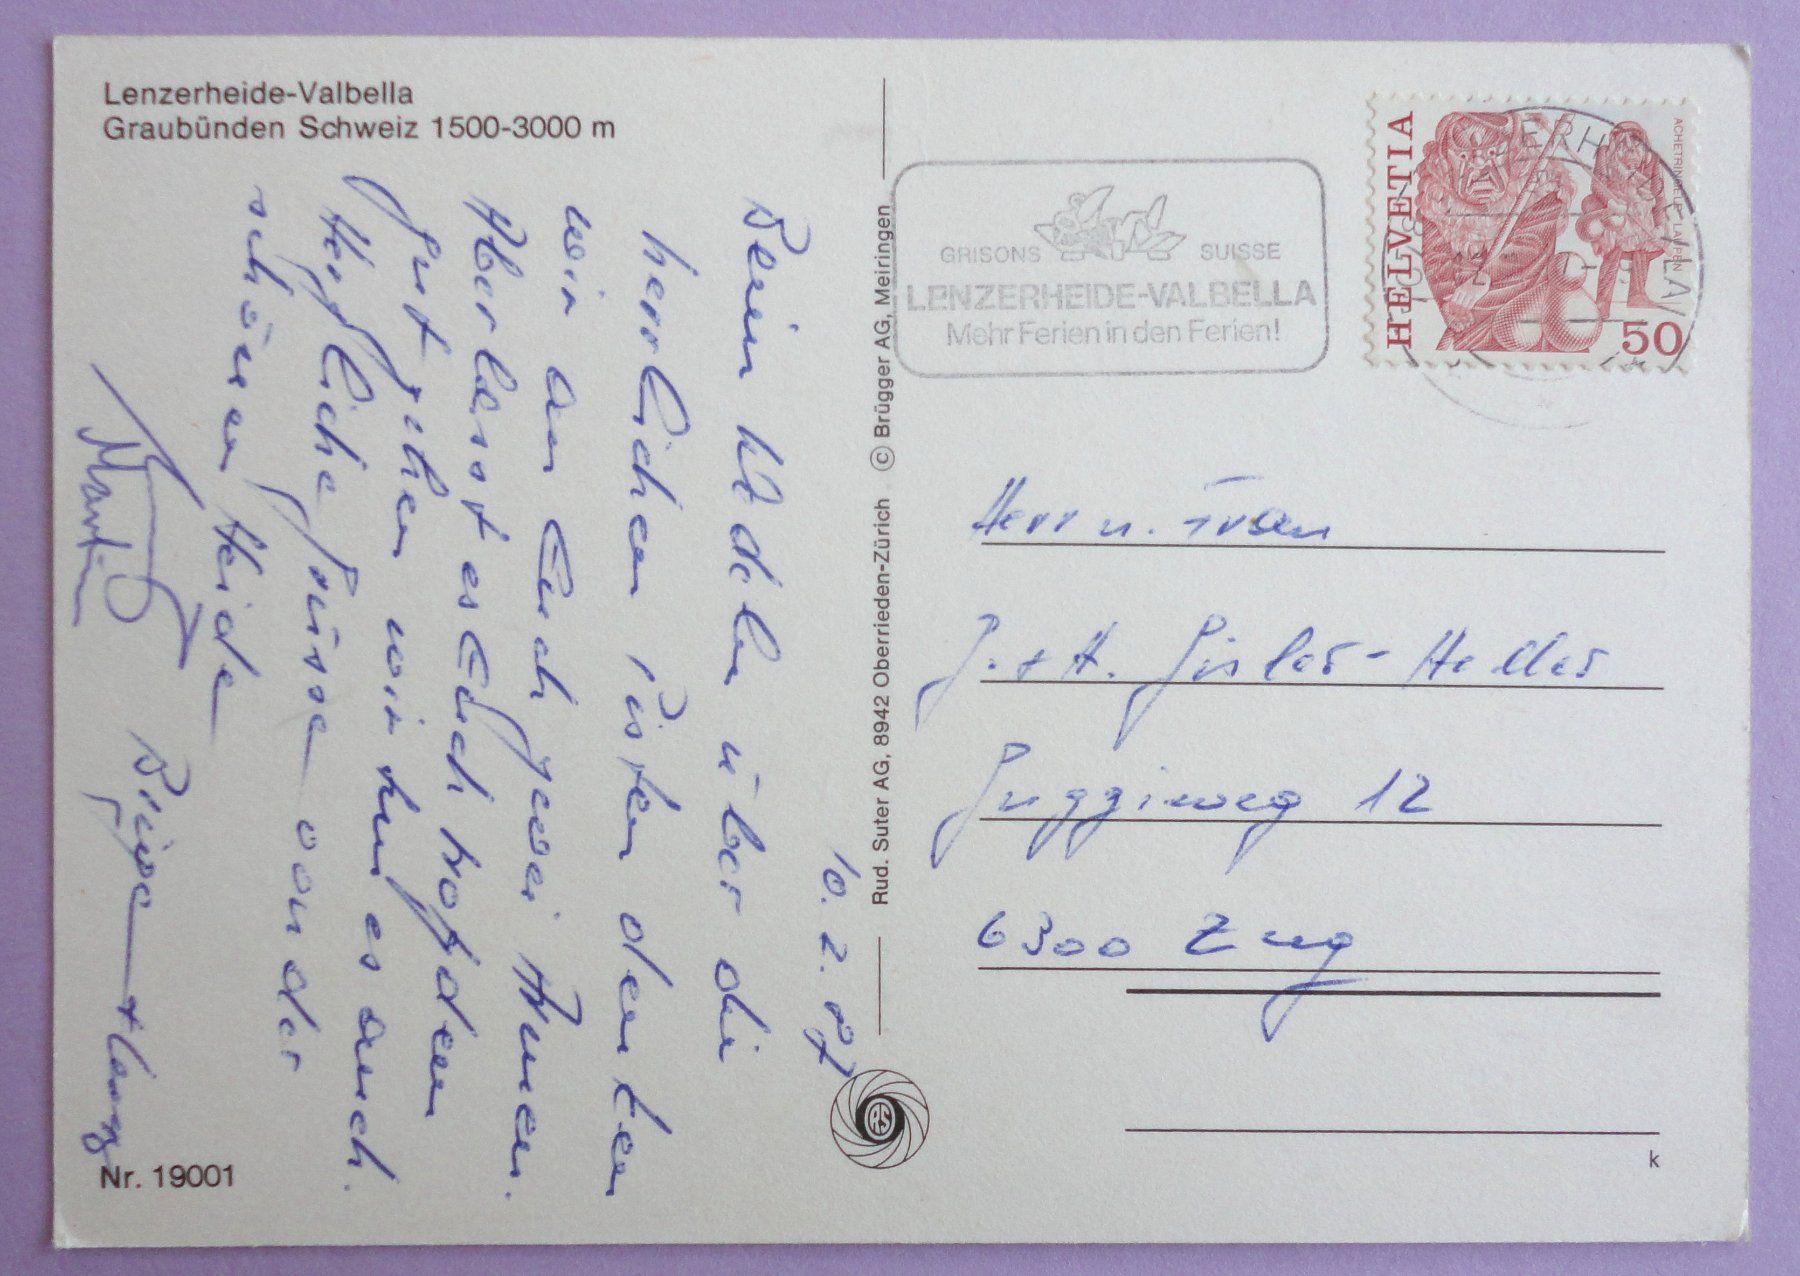 Lenzerheide-Valbella
Graubünden Schweiz 1500-3000 m
10. 2. 87
Beim Wedeln über die
herrlichen Pisten denken
wir an Euch zwei Armen.
Aber lasst es Euch
gut gehen wir tun es auch.
Herzliche Grüsse von der
schönen Heide
Martin
Nr. 19001
Rud. Suter AG, 8942 Oberrieden-Zürich © Brügger AG, Meiringen
GRISONS SUISSE
LENZERHEIDE-VALBELLA
Mehr Ferien in den Ferien!
HELVETIA
ACHETRINGELER LAUPEN
50
Herr u. Frau
J. + H. Gisler-Heller
Guggiweg 12
6300 Zug
k